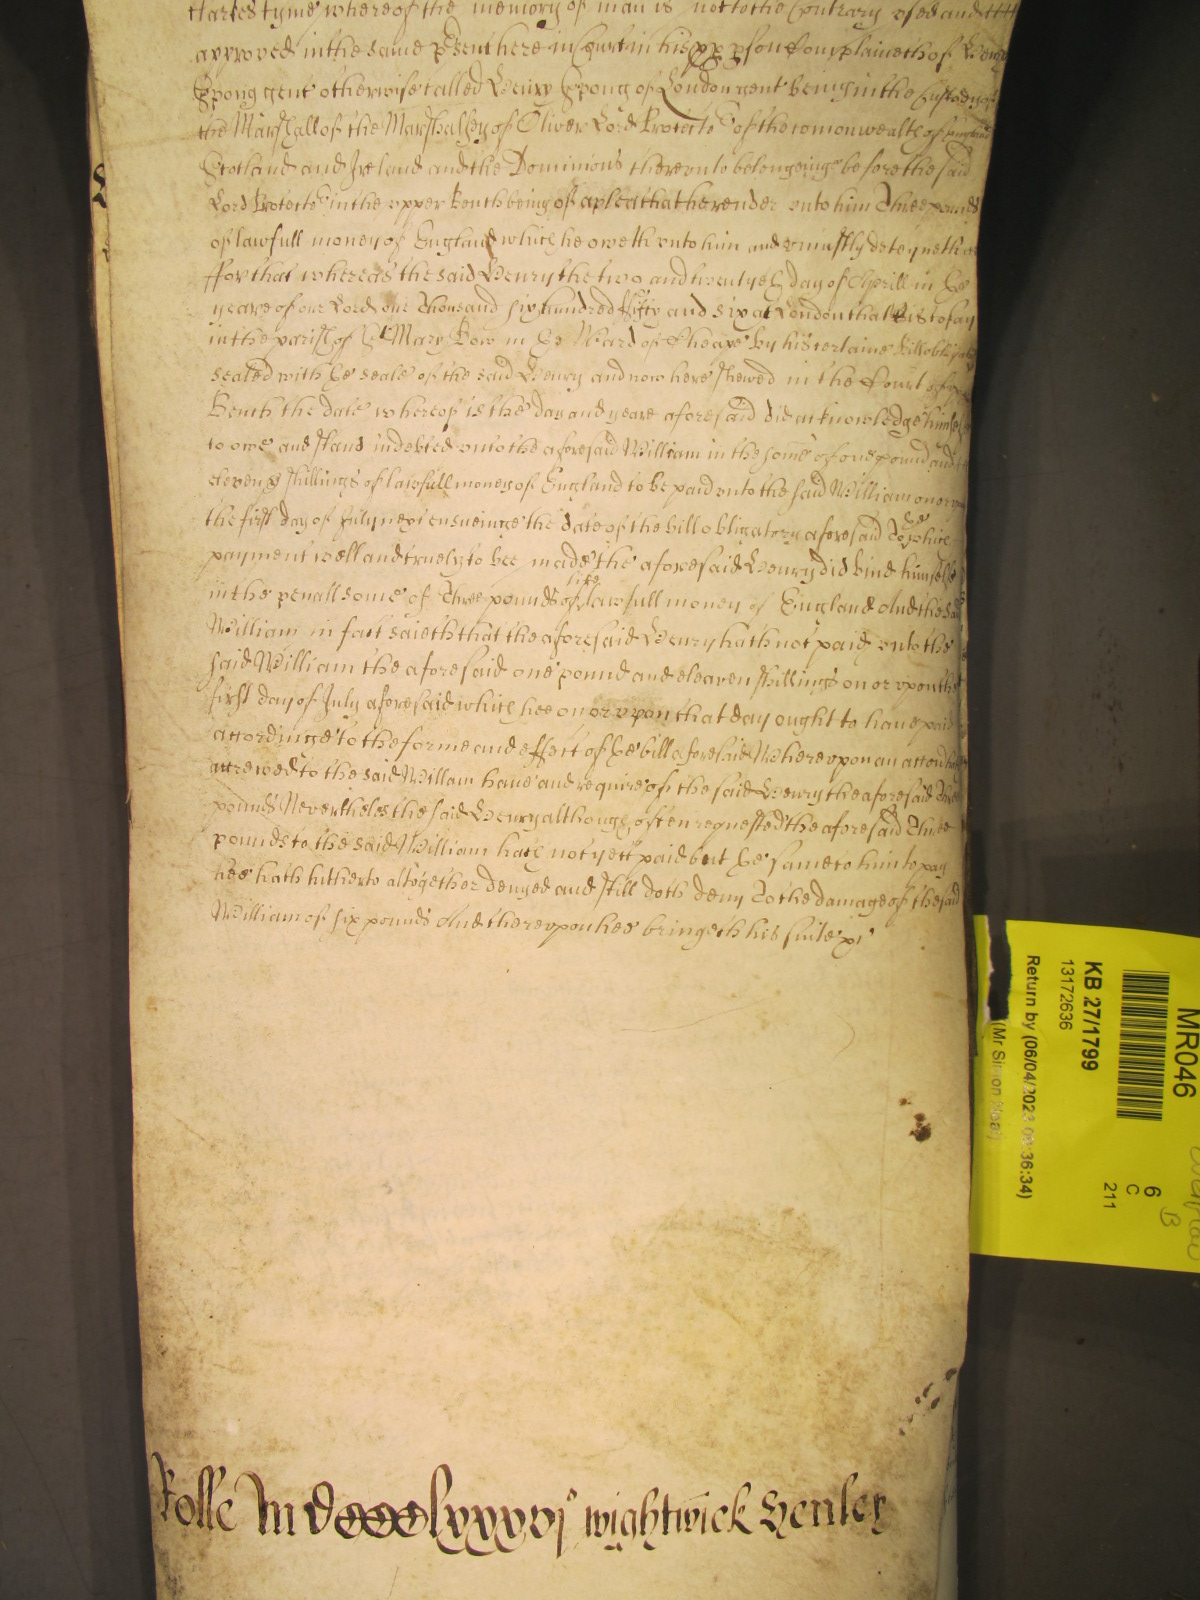 clarkes tyme whereof the memory of man is not to the Contrary used and
approved in the same psent here in Court in his pp pson Complaineth of Henry
Spong gent otherwise called Henry Spong of London gent being in the Custody of
the Marshall of the Marshalsey of Oliver Lord Protector of the comonwealth of England
Scotland and Ireland and the Dominions therevnto belonginge before the said
Lord Protector in the vpper bench being of a plea that he render vnto him Three pounds
of lawfull money of England which he oweth vnto him and vniustly deteyneth
ffor that whereas the said Henry the two and twentyeth day of Aprill in the
yeare of our Lord one Thousand six hundred ffifty and six at London that is to say
in the parish of St Mary Bow in the Ward of Cheape by his certaine bill obligatory
sealed with the seale of the said Henry and now here shewed in the Court of vpper
Bench the date whereof is the day and yeare aforesaid did acknowledge himself
to owe and stand indebted vnto the aforesaid William in the some of one pound and
eleven shillings of lawfull money of England to be paid vnto the said William on or vpon
the first day of July next ensueinge the date of the bill obligatory aforesaid To the which
payment well and truely to bee made the aforesaid Henry did bind himselfe
in the penall some of Three pounds of like lawfull money of England And the said
William in fact saieth that the aforesaid Henry hath not paid vnto the
said William the aforesaid one pound and eleaven shillings on or vpon the
first day of July aforesaid which hee on or vpon that day ought to have paid
accordinge to the forme and effect of the bill aforesaid Wherevpon an accon hath
accrewed to the said Willam to have and require of the said Henry the aforesaid Three
pounds Nevertheles the said Henry although often requested the aforesaid Three
pounds to the said William hath not yett paid but the same to him to pay
hee hath hitherto altogether denyed and still doth deny To the damage of the said
William of six pounds And therevpon hee bringeth his suite
Rolle M Dccclxxxvj wightwick Henley
MR046
KB 27/1799
13172636
Return by (06/04/2023 36:34)
6
C
211
B